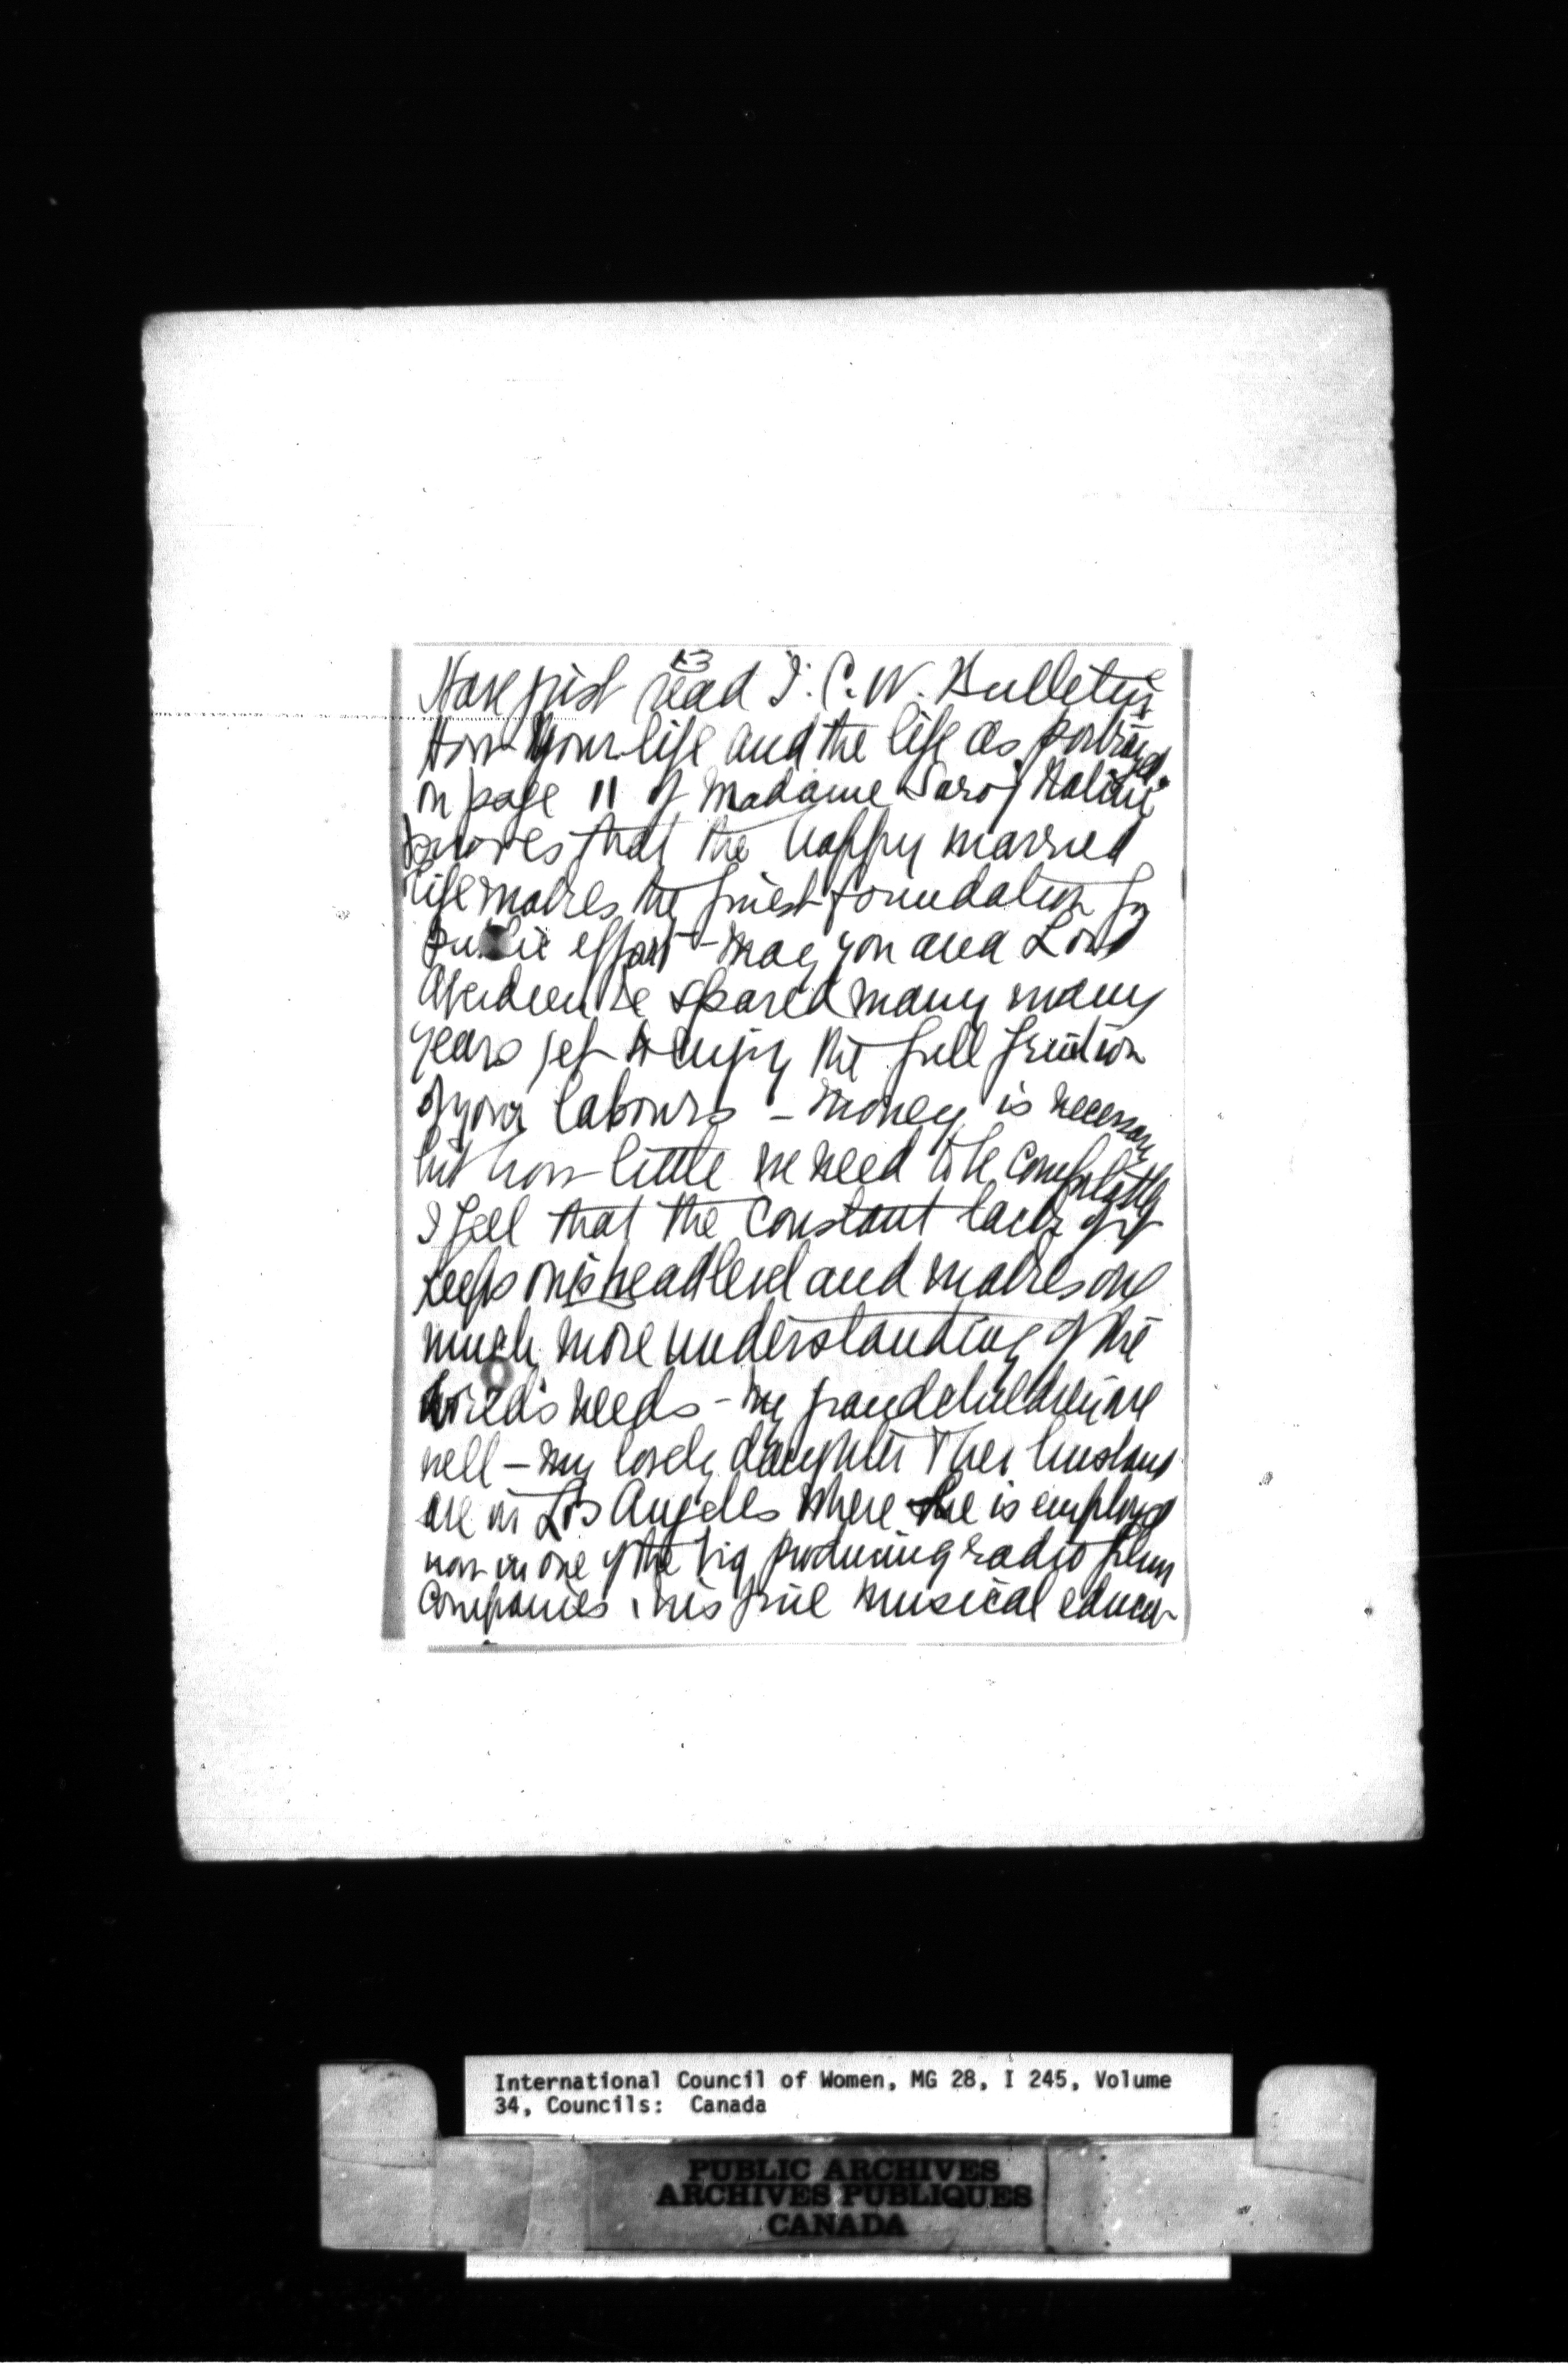 13
Have just read I.C.W. Bulletin
How your life and the life as portrayed
on page 11 of Madame Saroj Nalini
proves that the happy married
life makes the finest foundation for
public effort - may you and Lord
Aberdeen be spared many many
years yet to enjoy the full fruition
of your labours - money is necessary
but how little we need to be comfortable
I feel that the constant lack of it
keeps one's head level and makes one
much more understanding of the
world's needs - my grandchildren are
well - my lovely daughter & her husband
are in Los Angeles where he is employed
now in one of the big producing radio film
Companies, his fine musical educa-
International Council of Women, MG 28, I 245, Volume
34, Councils: Canada
PUBLIC ARCHIVES
ARCHIVES PUBLIQUES
CANADA